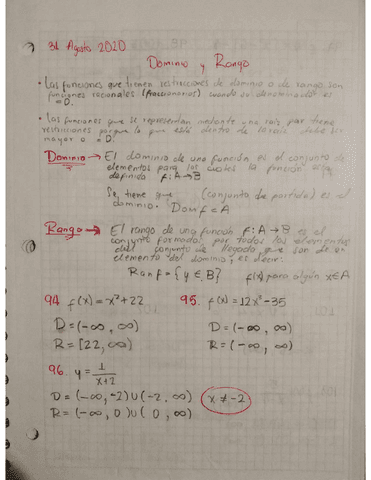 31 Agosto 2020
Dominio y Rango
• Las funciones que tienen restricciones de dominio o de rango son
funciones racionales (fraccionarios) cuando su denominador es
= 0.
• Las funciones que se representan mediante una raíz par tiene
restricciones porque lo que está dentro de la raíz debe ser
mayor o = 0.
Dominio → El dominio de una función es el conjunto de
elementos para los cuales la función está
definido f: A → B
Se tiene que (conjunto de partida) es el
dominio. Dom f = A
Rango → El rango de una función f: A → B es el
conjunto formado por todos los elementos
del conjunto de llegada que son de
elemento del dominio y es decir:
Ran f = {y ∈ B} f(x) para algún x ∈ A
94. f(x) = x² + 22 95. f(x) = 12x³ - 35
D = (-∞, ∞) D = (-∞, ∞)
R = [22, ∞) R = (-∞, ∞)
96. y = 1/(x+2)
D = (-∞, -2) U (-2, ∞) x ≠ -2
R = (-∞, 0) U (0, ∞)